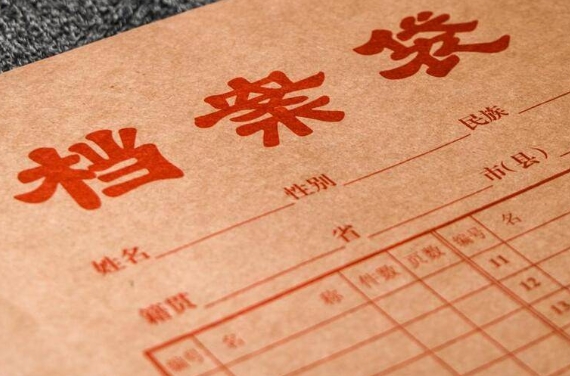 档案袋
姓名 性别 民族
籍贯 省 市(县)
编号 名 称 件数 页数 编号 名
11
12
13